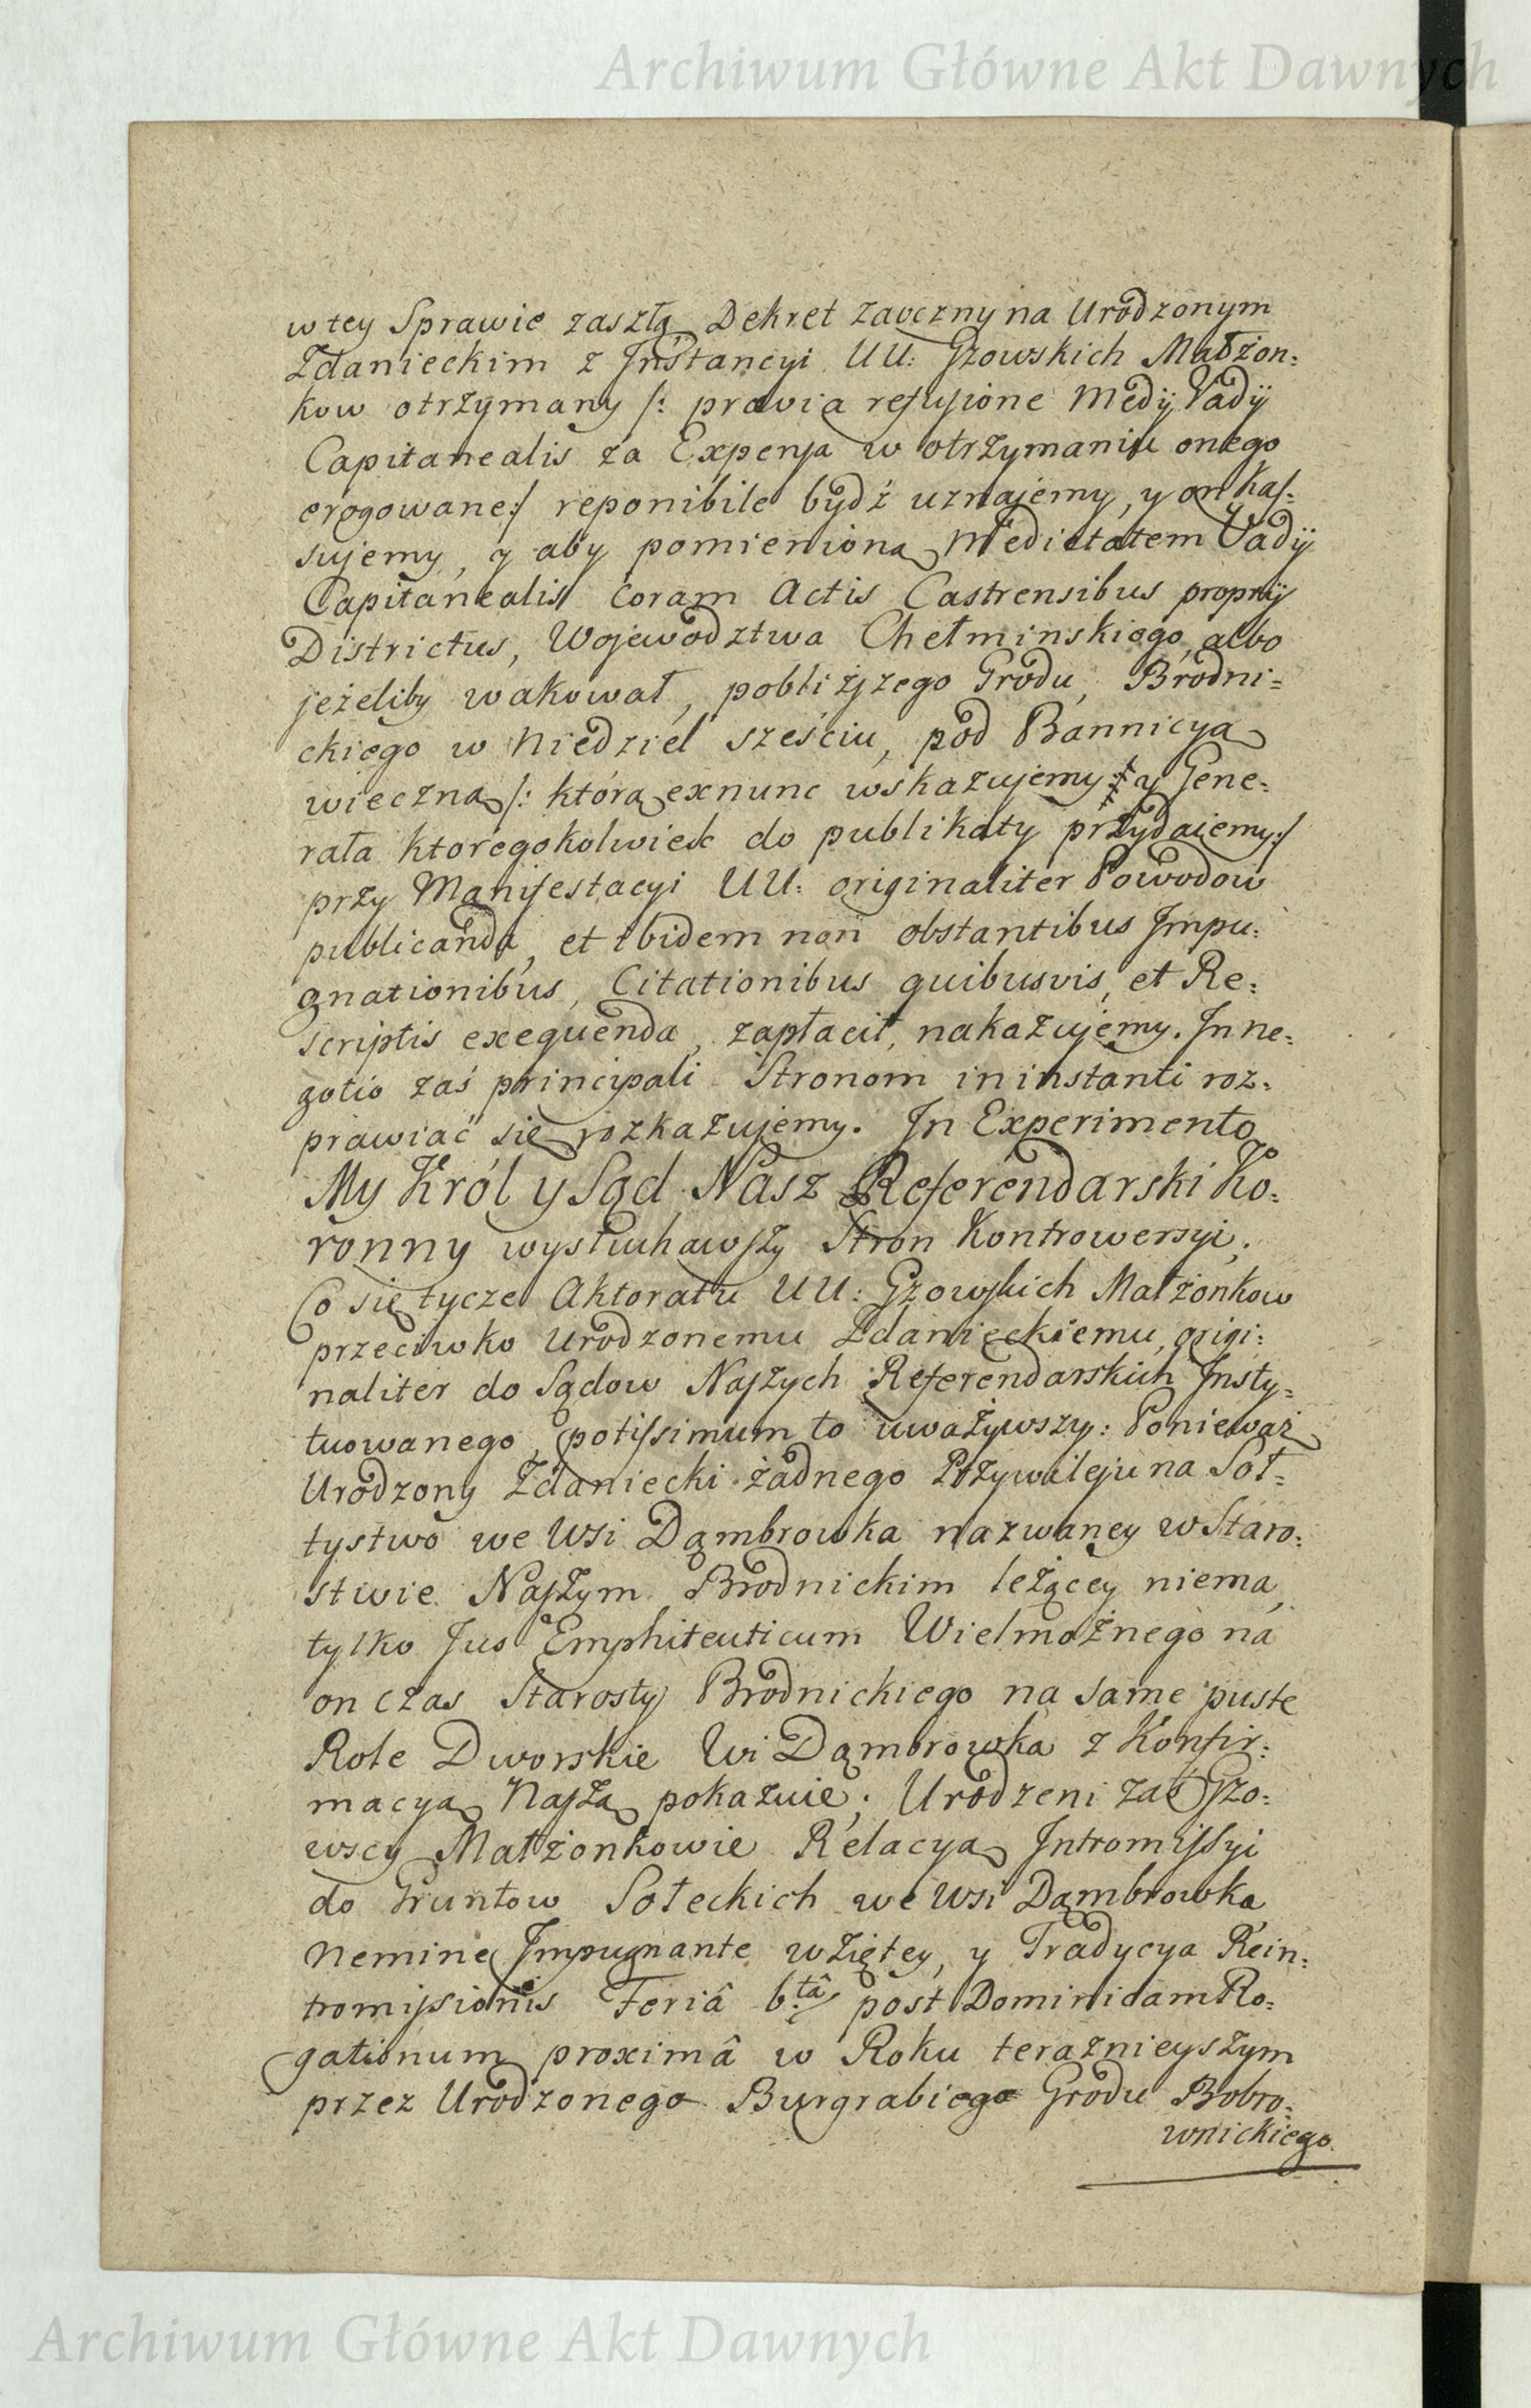 Archiwum Główne Akt Dawnych
w tey Sprawie zaszłą Dekret zaoczny na Urodzonym
Zdanieckim z Jnstancyi UU: Gzowskich Małżon:
kow otrzymany /: pravia refusione Medij Vadij
Capitanealis za Expensa w otrzymaniu onego
erogowane:/ reponibile bydź uznajemy, y on kas:
sujemy, y aby pomienioną Medietatem Vadij
Capitanealis coram Actis Castrensibus proprij
Districtus, Wojewodztwa Chełminskiego, albo
jeżeliby wakował, pobliższego Grodu, Brodni=
ckiego w Niedziel sześciu, pod Bannicyą
wieczną /: którą exnunc wskazujemy y Gene:
rała ktoregokolwiek do publikaty przydaiemy:/
przy Manifestacyi UU: originaliter Powodow
publicanda, et ibidem non obstantibus Jmpu:
gnationibus, Citationibus quibusvis, et Re:
scriptis exequenda, zapłacił, nakazujemy. Jn ne:
gotio zaś principali Stronom in instanti roz:
prawiać się rozkazujemy. Jn Experimento
My Król y Sąd Nasz Referendarski Ko:
ronny wysłuchawszy Stron Kontrowersyi,
Co się tycze Aktoratu UU: Gzowskich Małżonkow
przeciwko Urodzonemu Zdanieckiemu, origi:
naliter do Sądow Naszych Referendarskich Jnsty:
tuowanego, potissimum to uważywszy: Ponieważ
Urodzony Zdaniecki żadnego Przywileju na Soł=
tystwo we Wsi Dąmbrowka nazwaney w Staro:
stwie Naszym Brodnickim leżącey niema,
tylko Jus Emphiteuticum Wielmożnego na
on czas Starosty Brodnickiego na same puste
Role Dworskie Wsi Dąmbrowka z Konfir:
macyą Naszą pokazuie; Urodzeni zaś Gzo:
wscy Małżonkowie Relacyą Jntromissyi
do Gruntow Sołeckich we Wsi Dąmbrowka
Nemine Jmpugnante wziętey, y Tradycya Rein:
tromissionis Feriâ 6tâ post Dominicam Ro:
gationum proximâ w Roku teraznieyszym
przez Urodzonego Burgrabiego Grodu Bobro:
wnickiego
Archiwum Główne Akt Dawnych